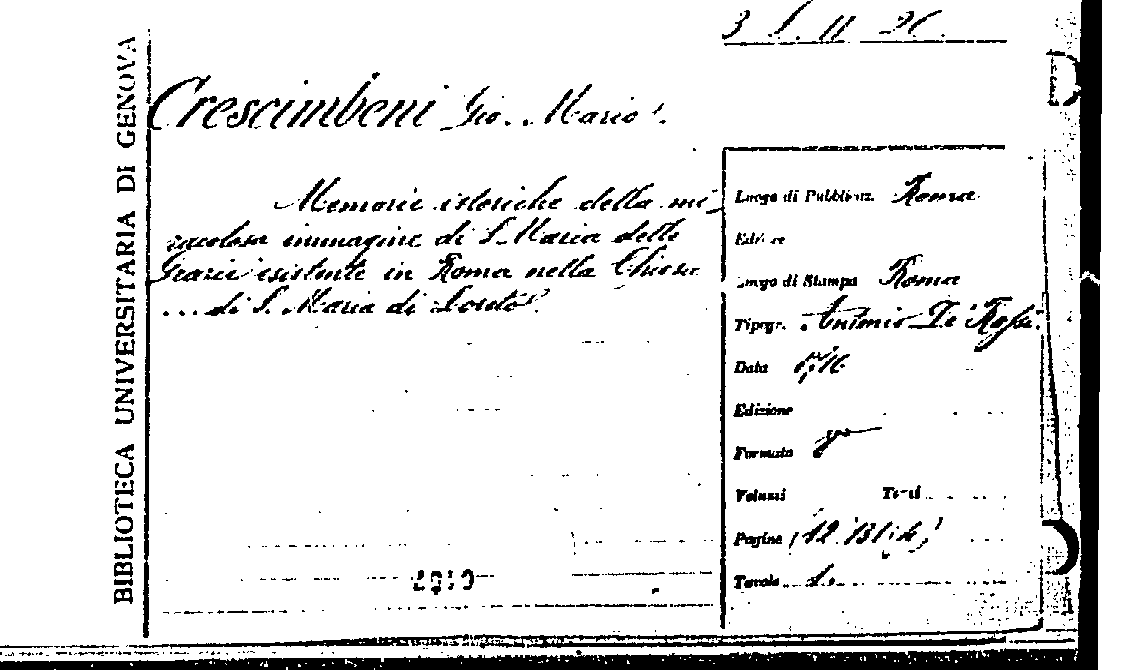 BIBLIOTECA UNIVERSITARIA DI GENOVA
Crescimbeni Gio. Mario
Memorie istoriche della mi-
racolosa immagine di S. Maria delle
Grazie esistente in Roma nella Chiesa
... di S. Maria di Loreto.
Luogo di Pubblicaz. Roma
Editore
Luogo di Stampa Roma
Tipogr. Antonio De' Rossi
Data 1716
Edizione
Formato 8°
Volumi Tomi
Pagine (12
Tavole 1.